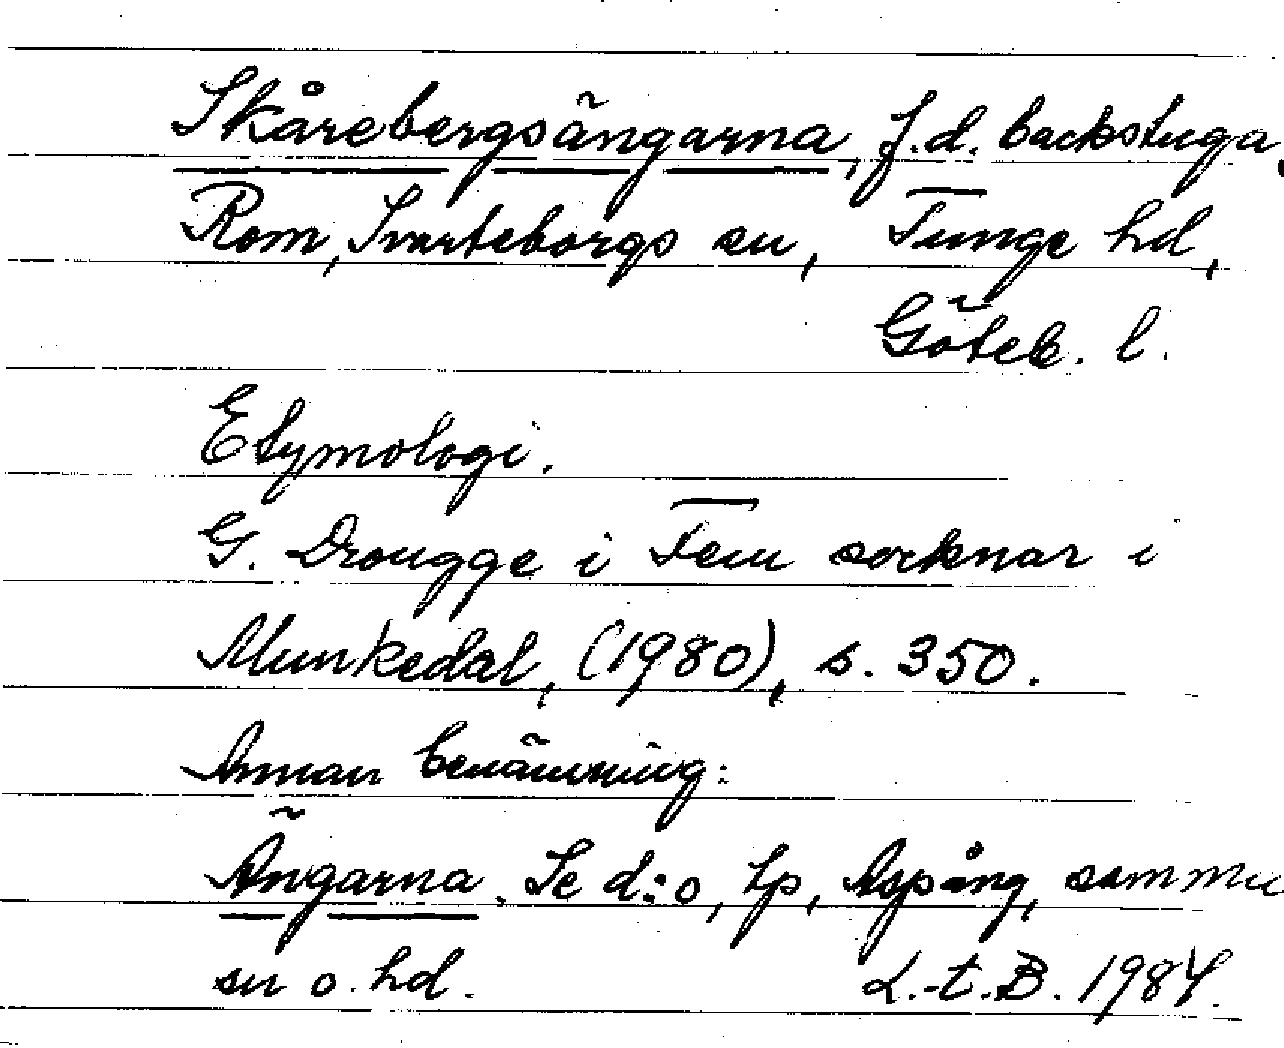 Skårebergsängarna, f.d. backstuga,
Rom, Svarteborgs sn, Tunge hd,
Göteb. l.
Etymologi.
G. Drougge i Fem socknar i
Munkedal, (1980), s. 350.
Annan benämning:
Ängarna. Se d:o, lp, Aspång, samma
sn o. hd. L.-t.B. 1984.